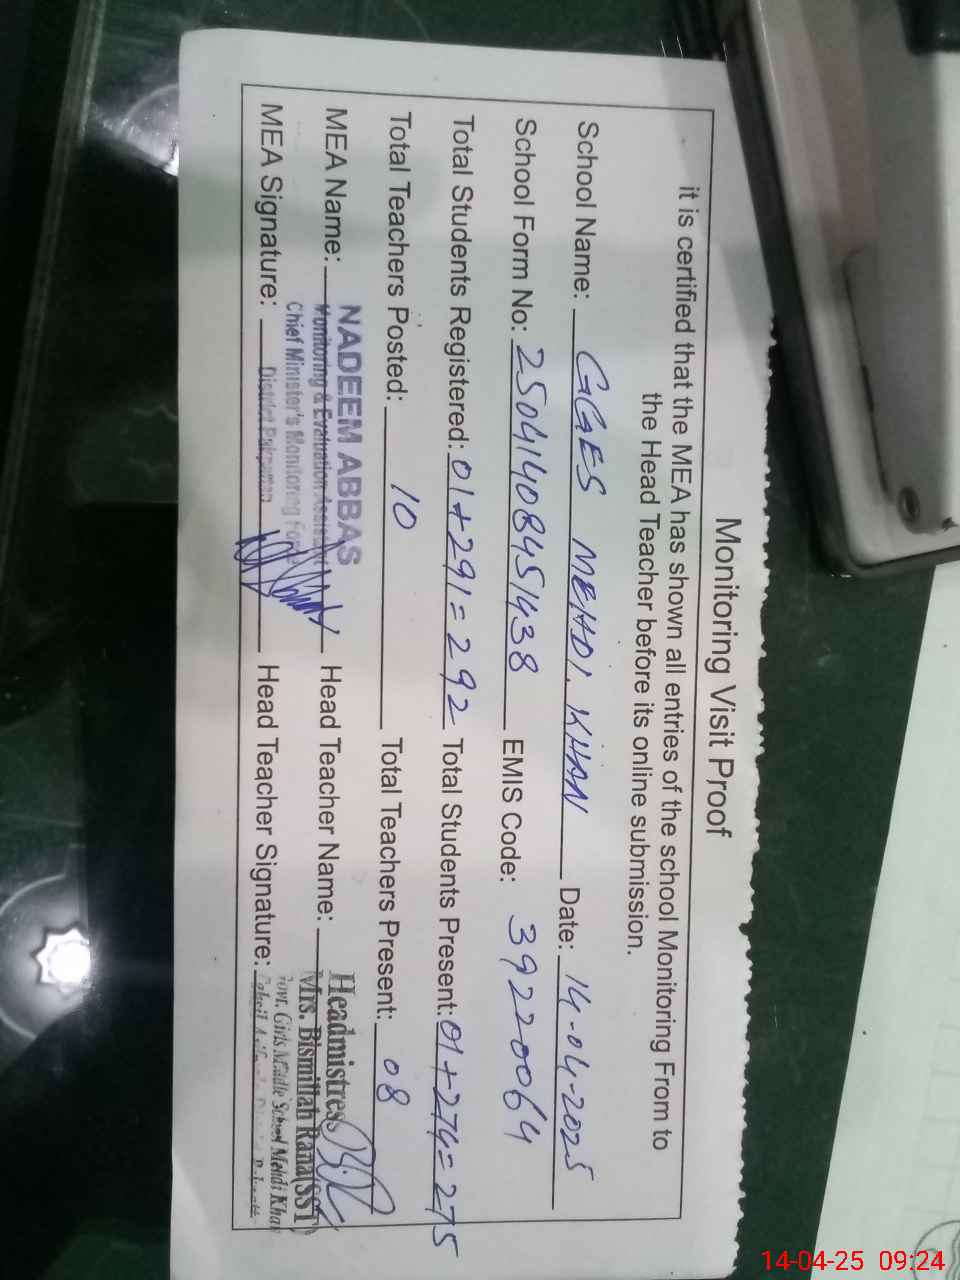 Monitoring Visit Proof
it is certified that the MEA has shown all entries of the school Monitoring From to
the Head Teacher before its online submission.
School Name: GGES MEHDI KHAN Date: 14-04-2025
School Form No: 25041408451438 EMIS Code: 39220064
Total Students Registered: 01+291=292 Total Students Present: 01+274=275
Total Teachers Posted: 10 Total Teachers Present: 08
MEA Name: NADEEM ABBAS Head Teacher Name: Headmistress
Monitoring & Evaluation Assistant Mrs. Bismillah Rana(SST)
Chief Minister's Monitoring Force Govt. Girls Middle School Mehdi Khan
MEA Signature: District Pakpattan Head Teacher Signature:
14-04-25 09:24